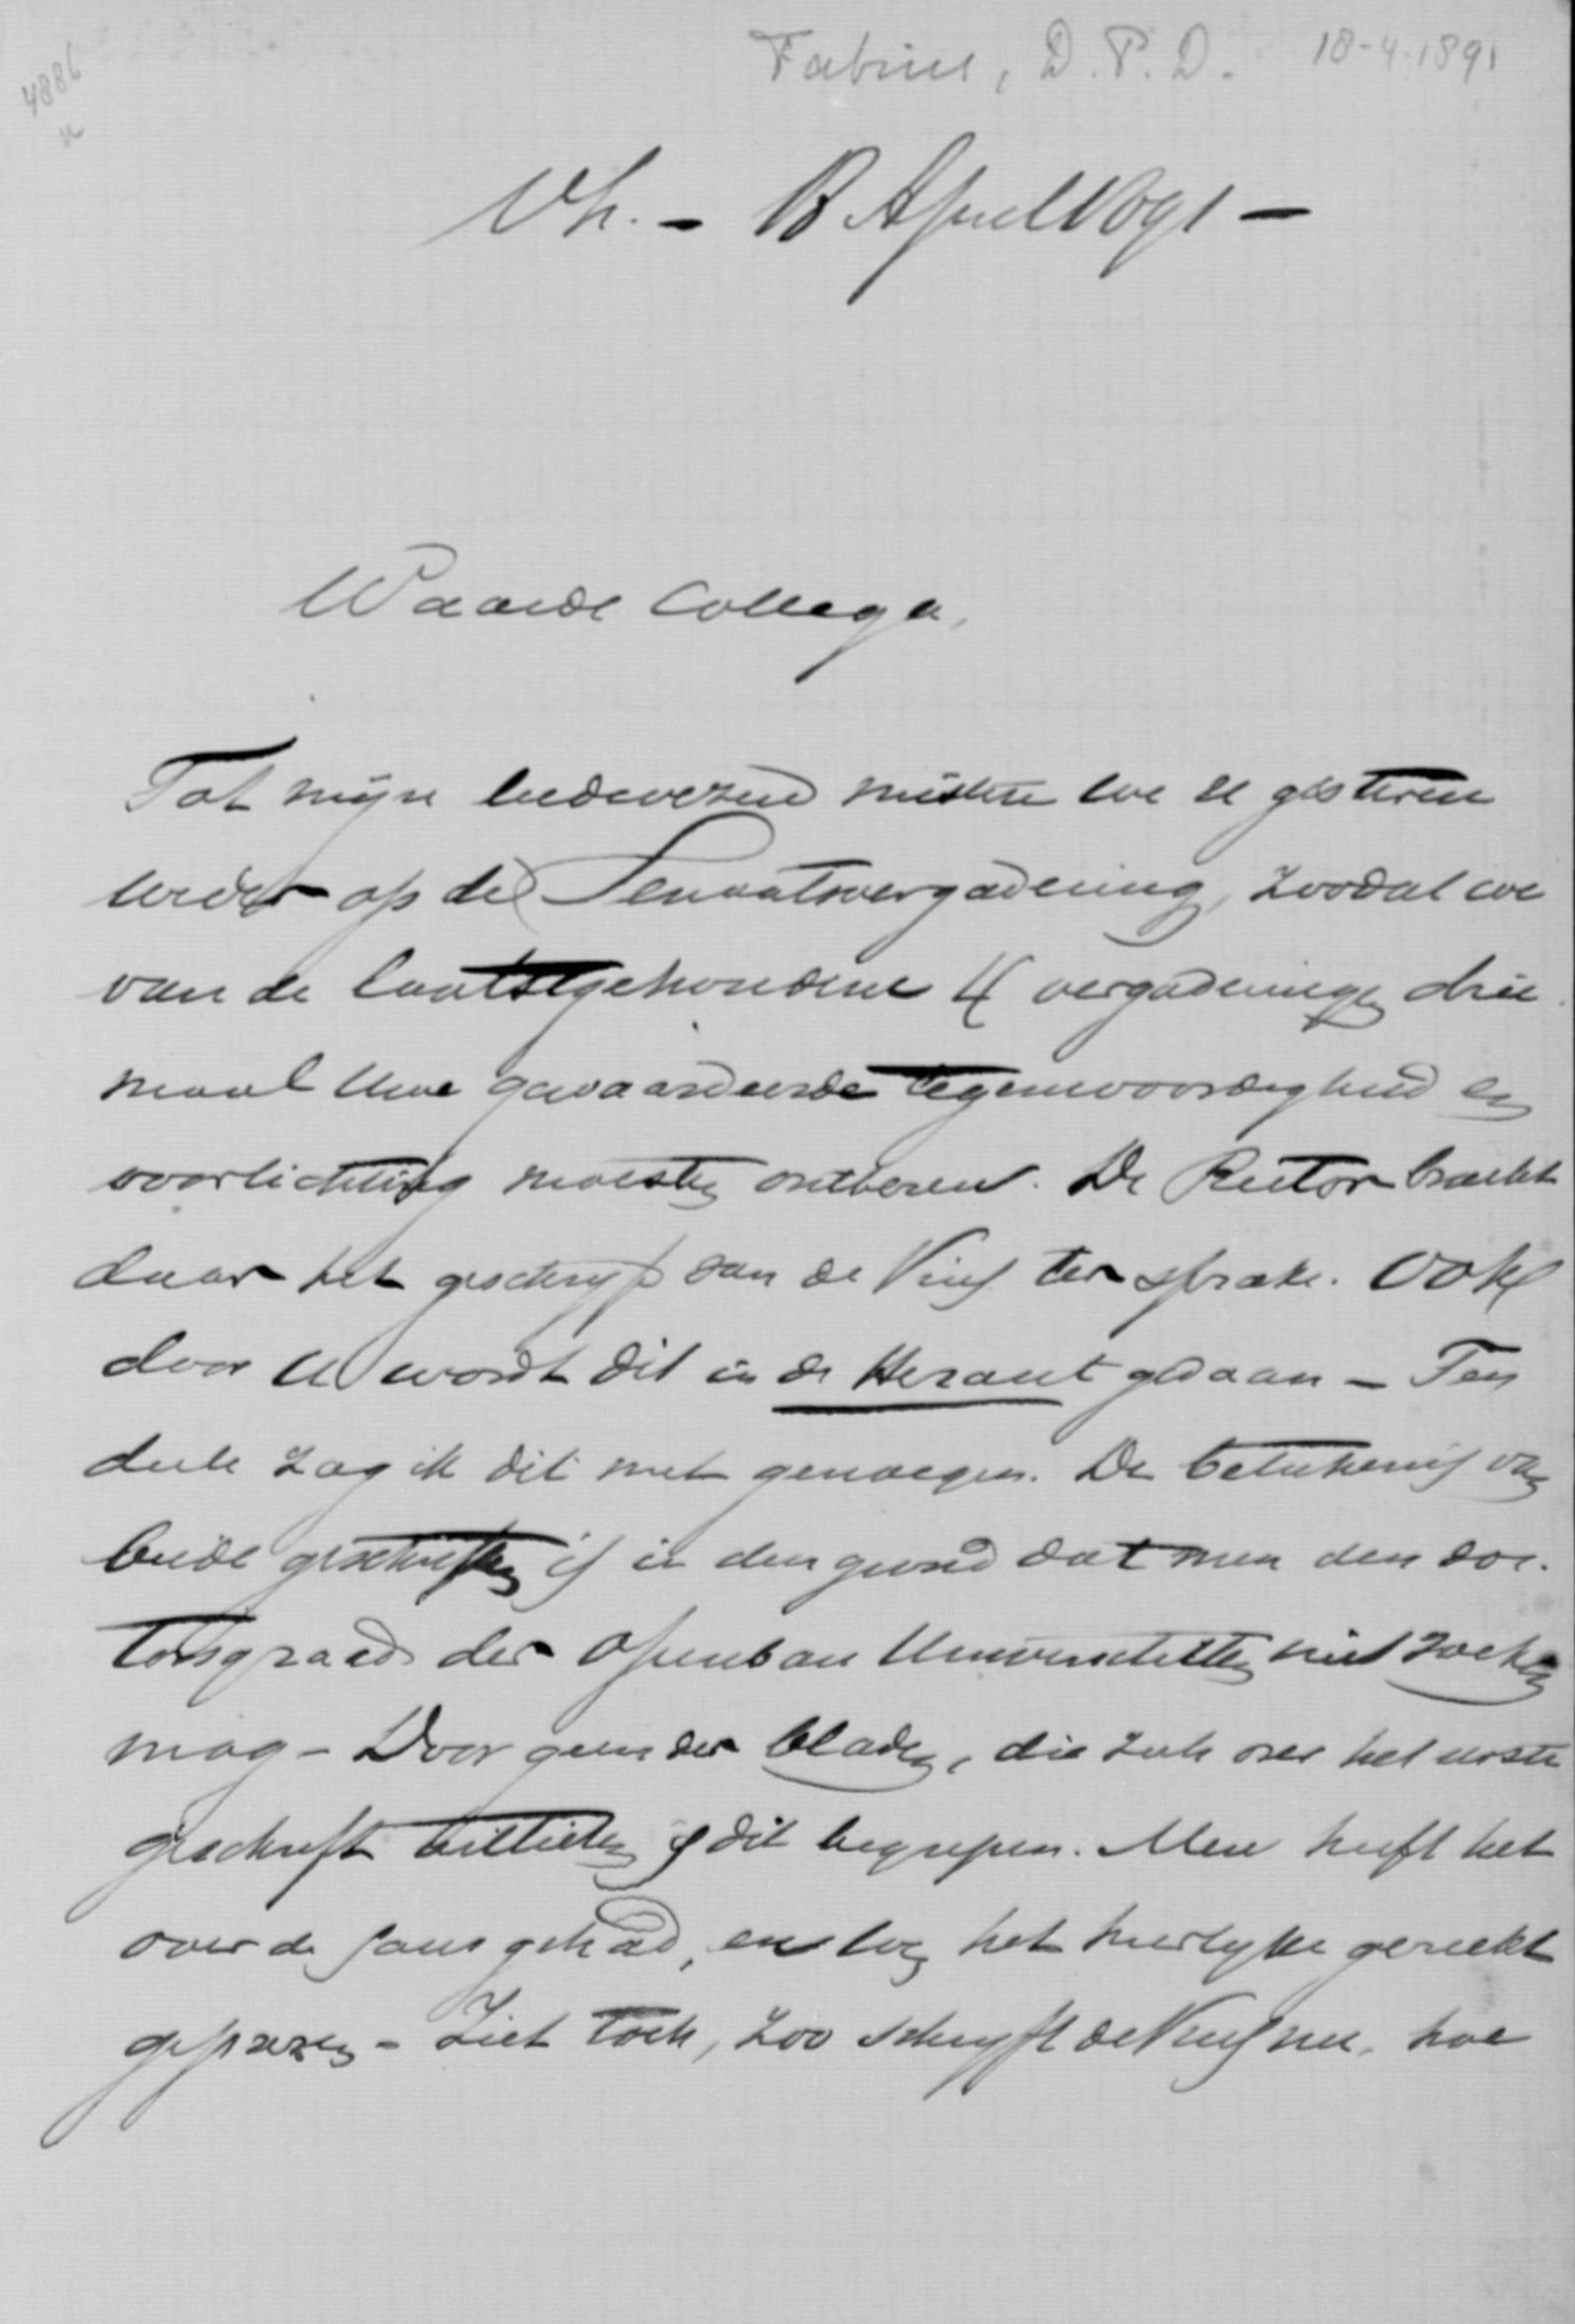 4886
Fabius, D.P.D. 18-4-1891
Vh. - 18 April 1891 -
Waarde Collega,
Tot mijn leedwezen misten we U gisteren
weder op de Senaatsvergadering, zoodat we
van de laatstgehoudene 4 vergaderingen drie
maal Uwe gewaardeerde tegenwoordigheid en
voorlichting moesten ontberen. De Rector bracht
daar het geschrijf van de Vrij ter sprake. Ook
door U wordt dit in de Heraut gedaan - Ten
deele zag ik dit met genoegen. De beteekenis van
beide geschriften is in den grond dat men den doc-
torsgraad der openbare Universiteiten niet zoeken
mag - Door geen der bladen, die zich over het eerste
geschrift uitlieten is dit begrepen. Men heeft het
over de saus gehad, en het heerlijke gerecht
geprezen - Ziet toch, zoo schrijft de Vrij nu, hoe